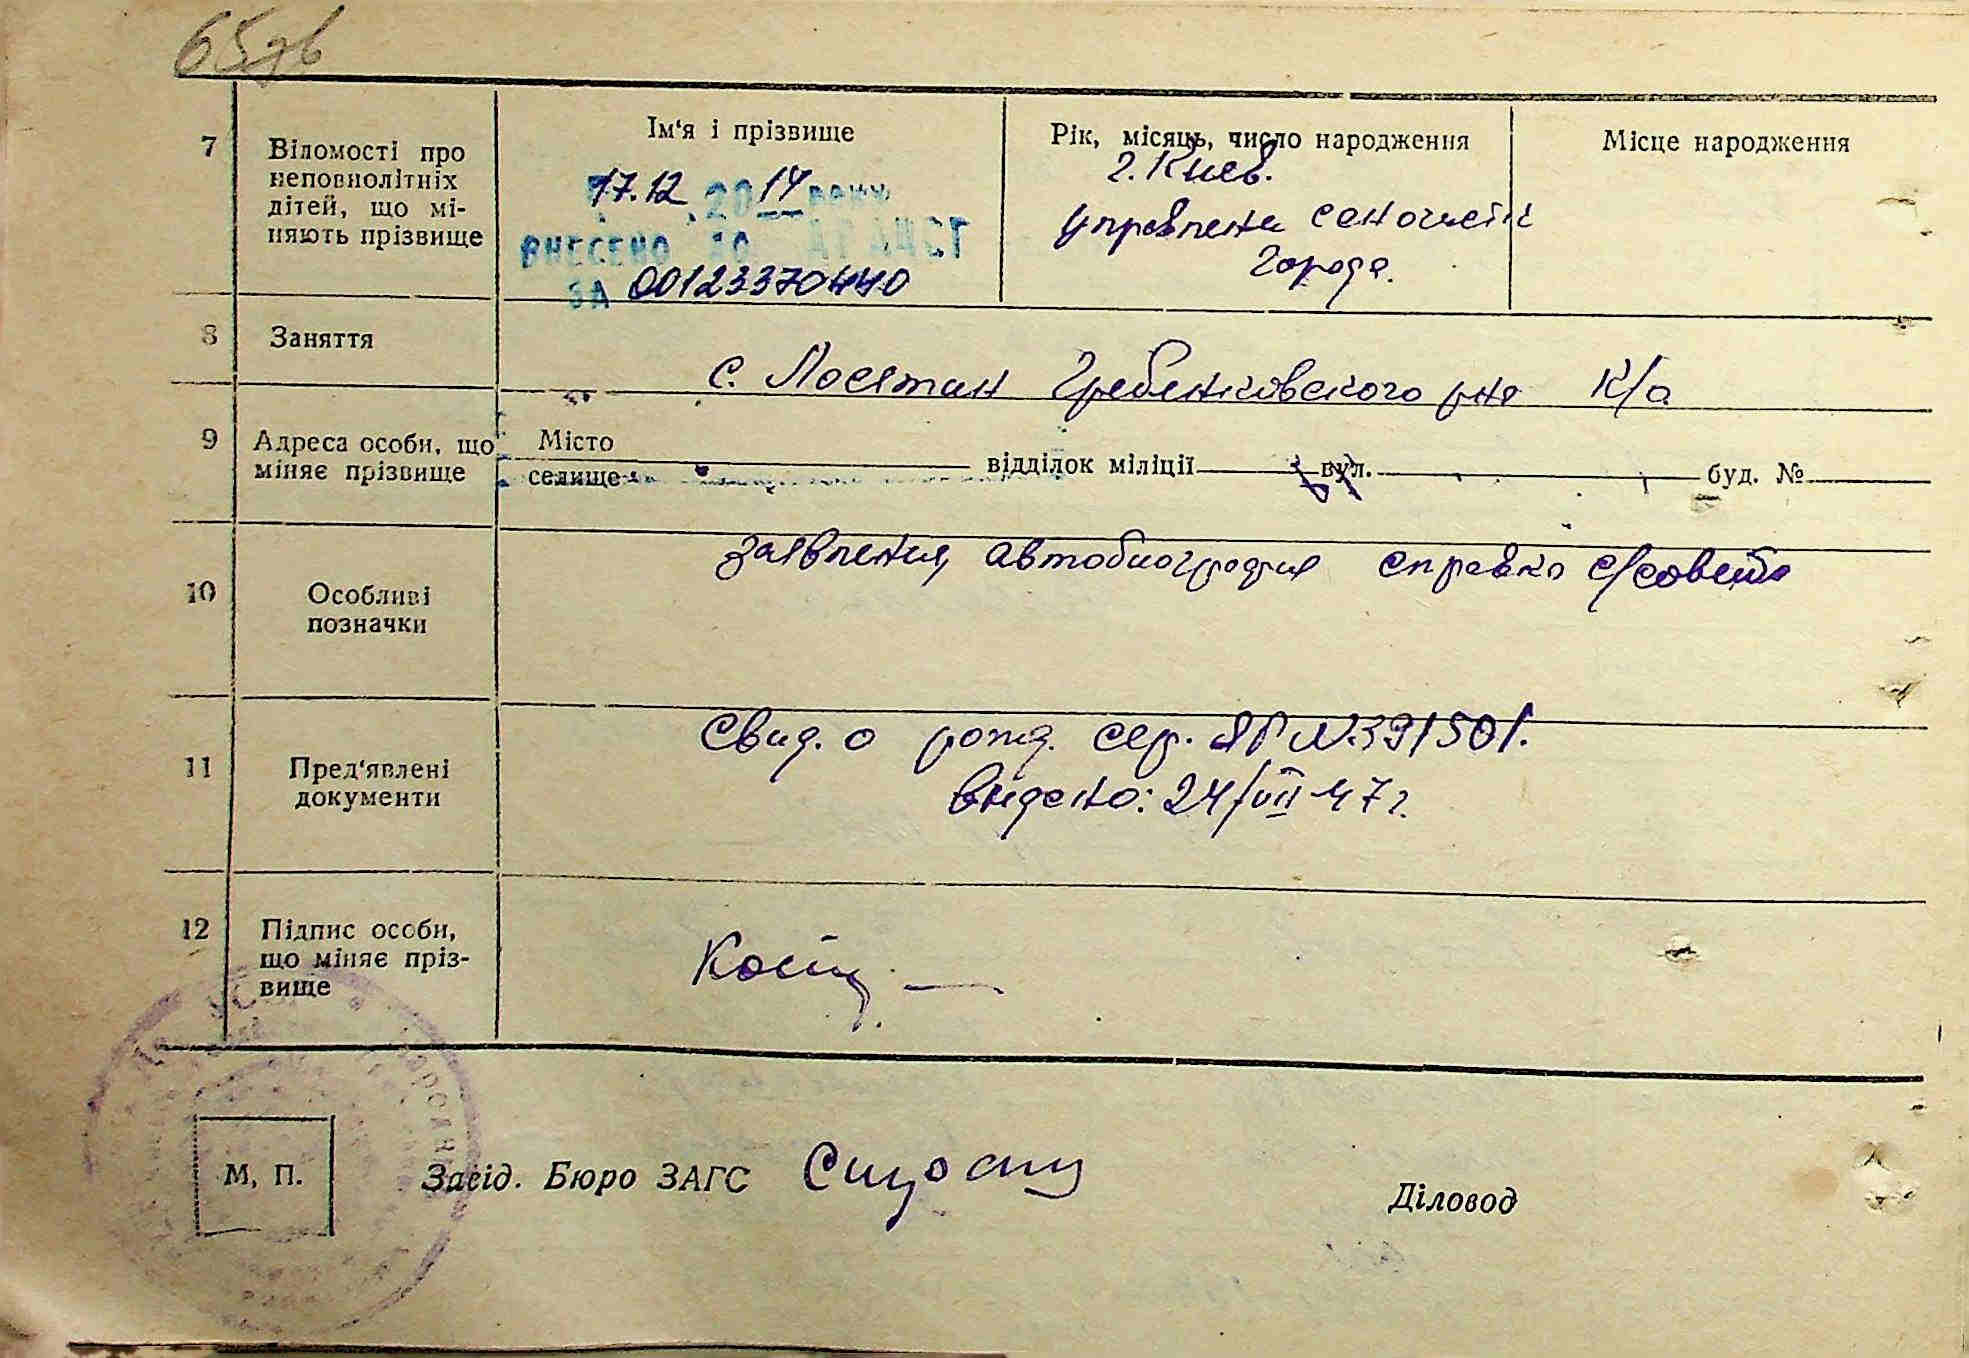 65зв
7
Відомості про
неповнолітніх
дітей, що мі-
няють прізвище
Ім'я і прізвище
17.12.2014 року
ВНЕСЕНО ДО ДРАЦСГ
ЗА 00123370440
Рік, місяць, число народження
г. Киев.
города.
Місце народження
8
Заняття
с. Гребенковского рна К/о
9
Адреса особи, що
міняє прізвище
Місто
селище
відділок міліції
вул.
буд. №
10
Особливі
позначки
заявления, автобиография справка с/совета
11
Пред'явлені
документи
Свид. о рожд. сер. ЯР N391501.
видено: 24/VII-47г.
12
Підпис особи,
що міняє пріз-
вище
М. П.
Завід. Бюро ЗАГС
Діловод